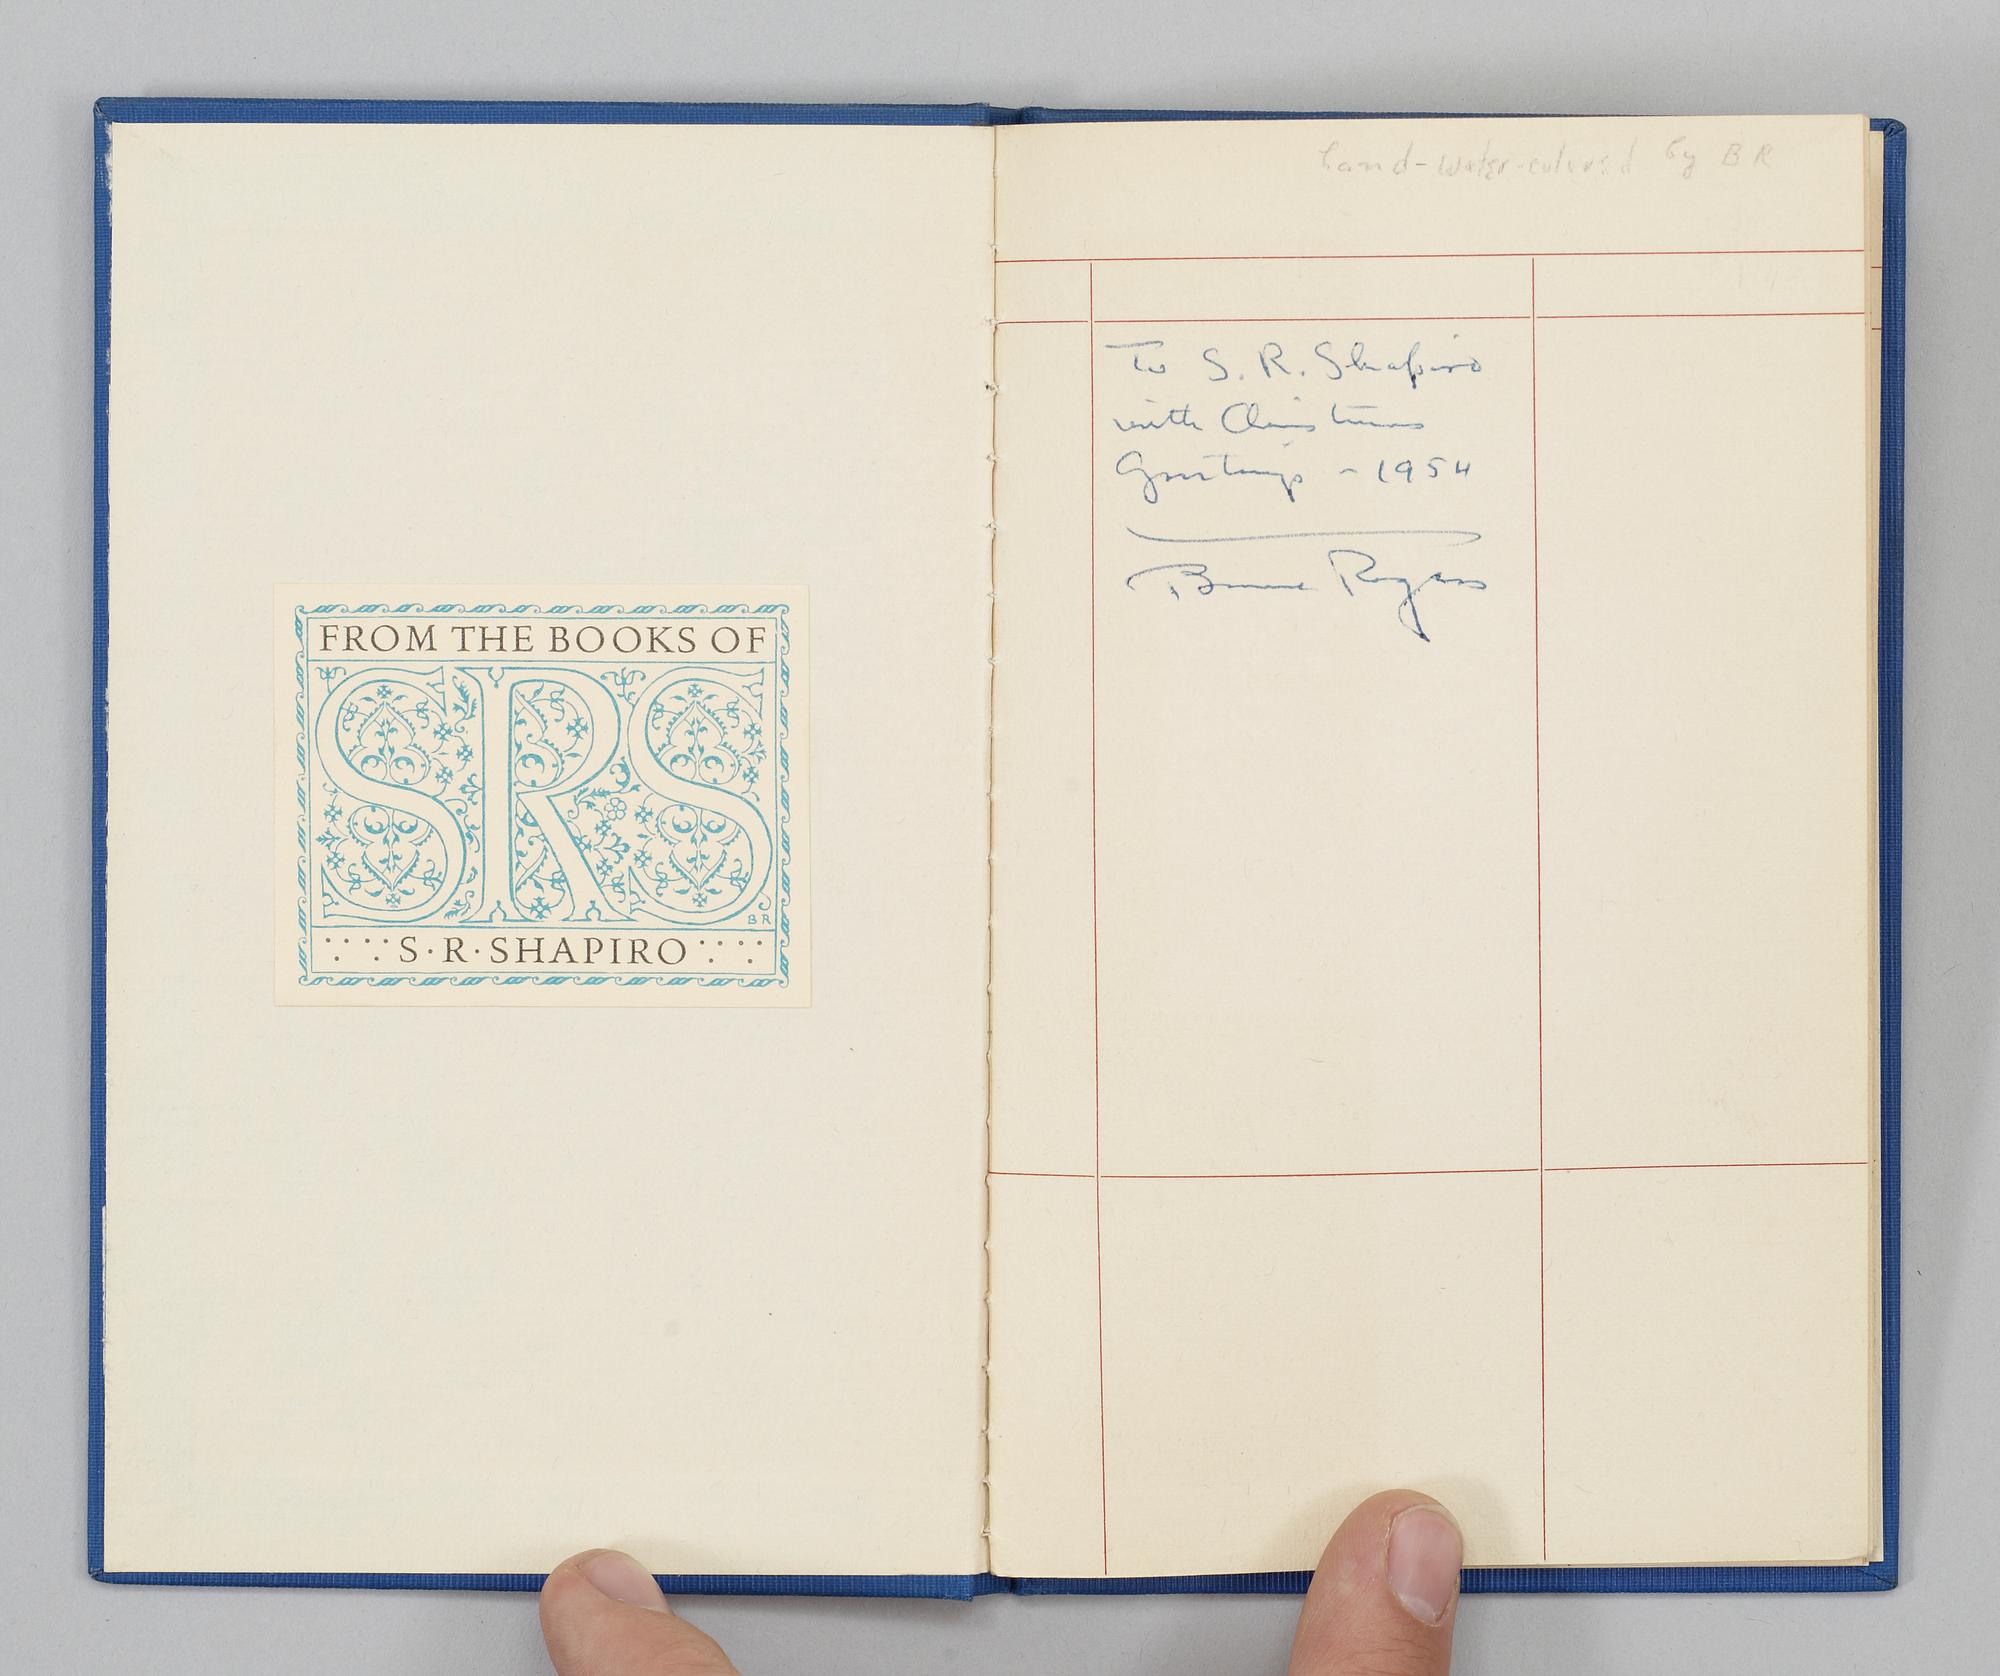 FROM THE BOOKS OF
SRS
BR
S·R·SHAPIRO
hand-water-colored by BR
To S. R. Shapiro
with Christmas
Greetings - 1954
Bruce Rogers